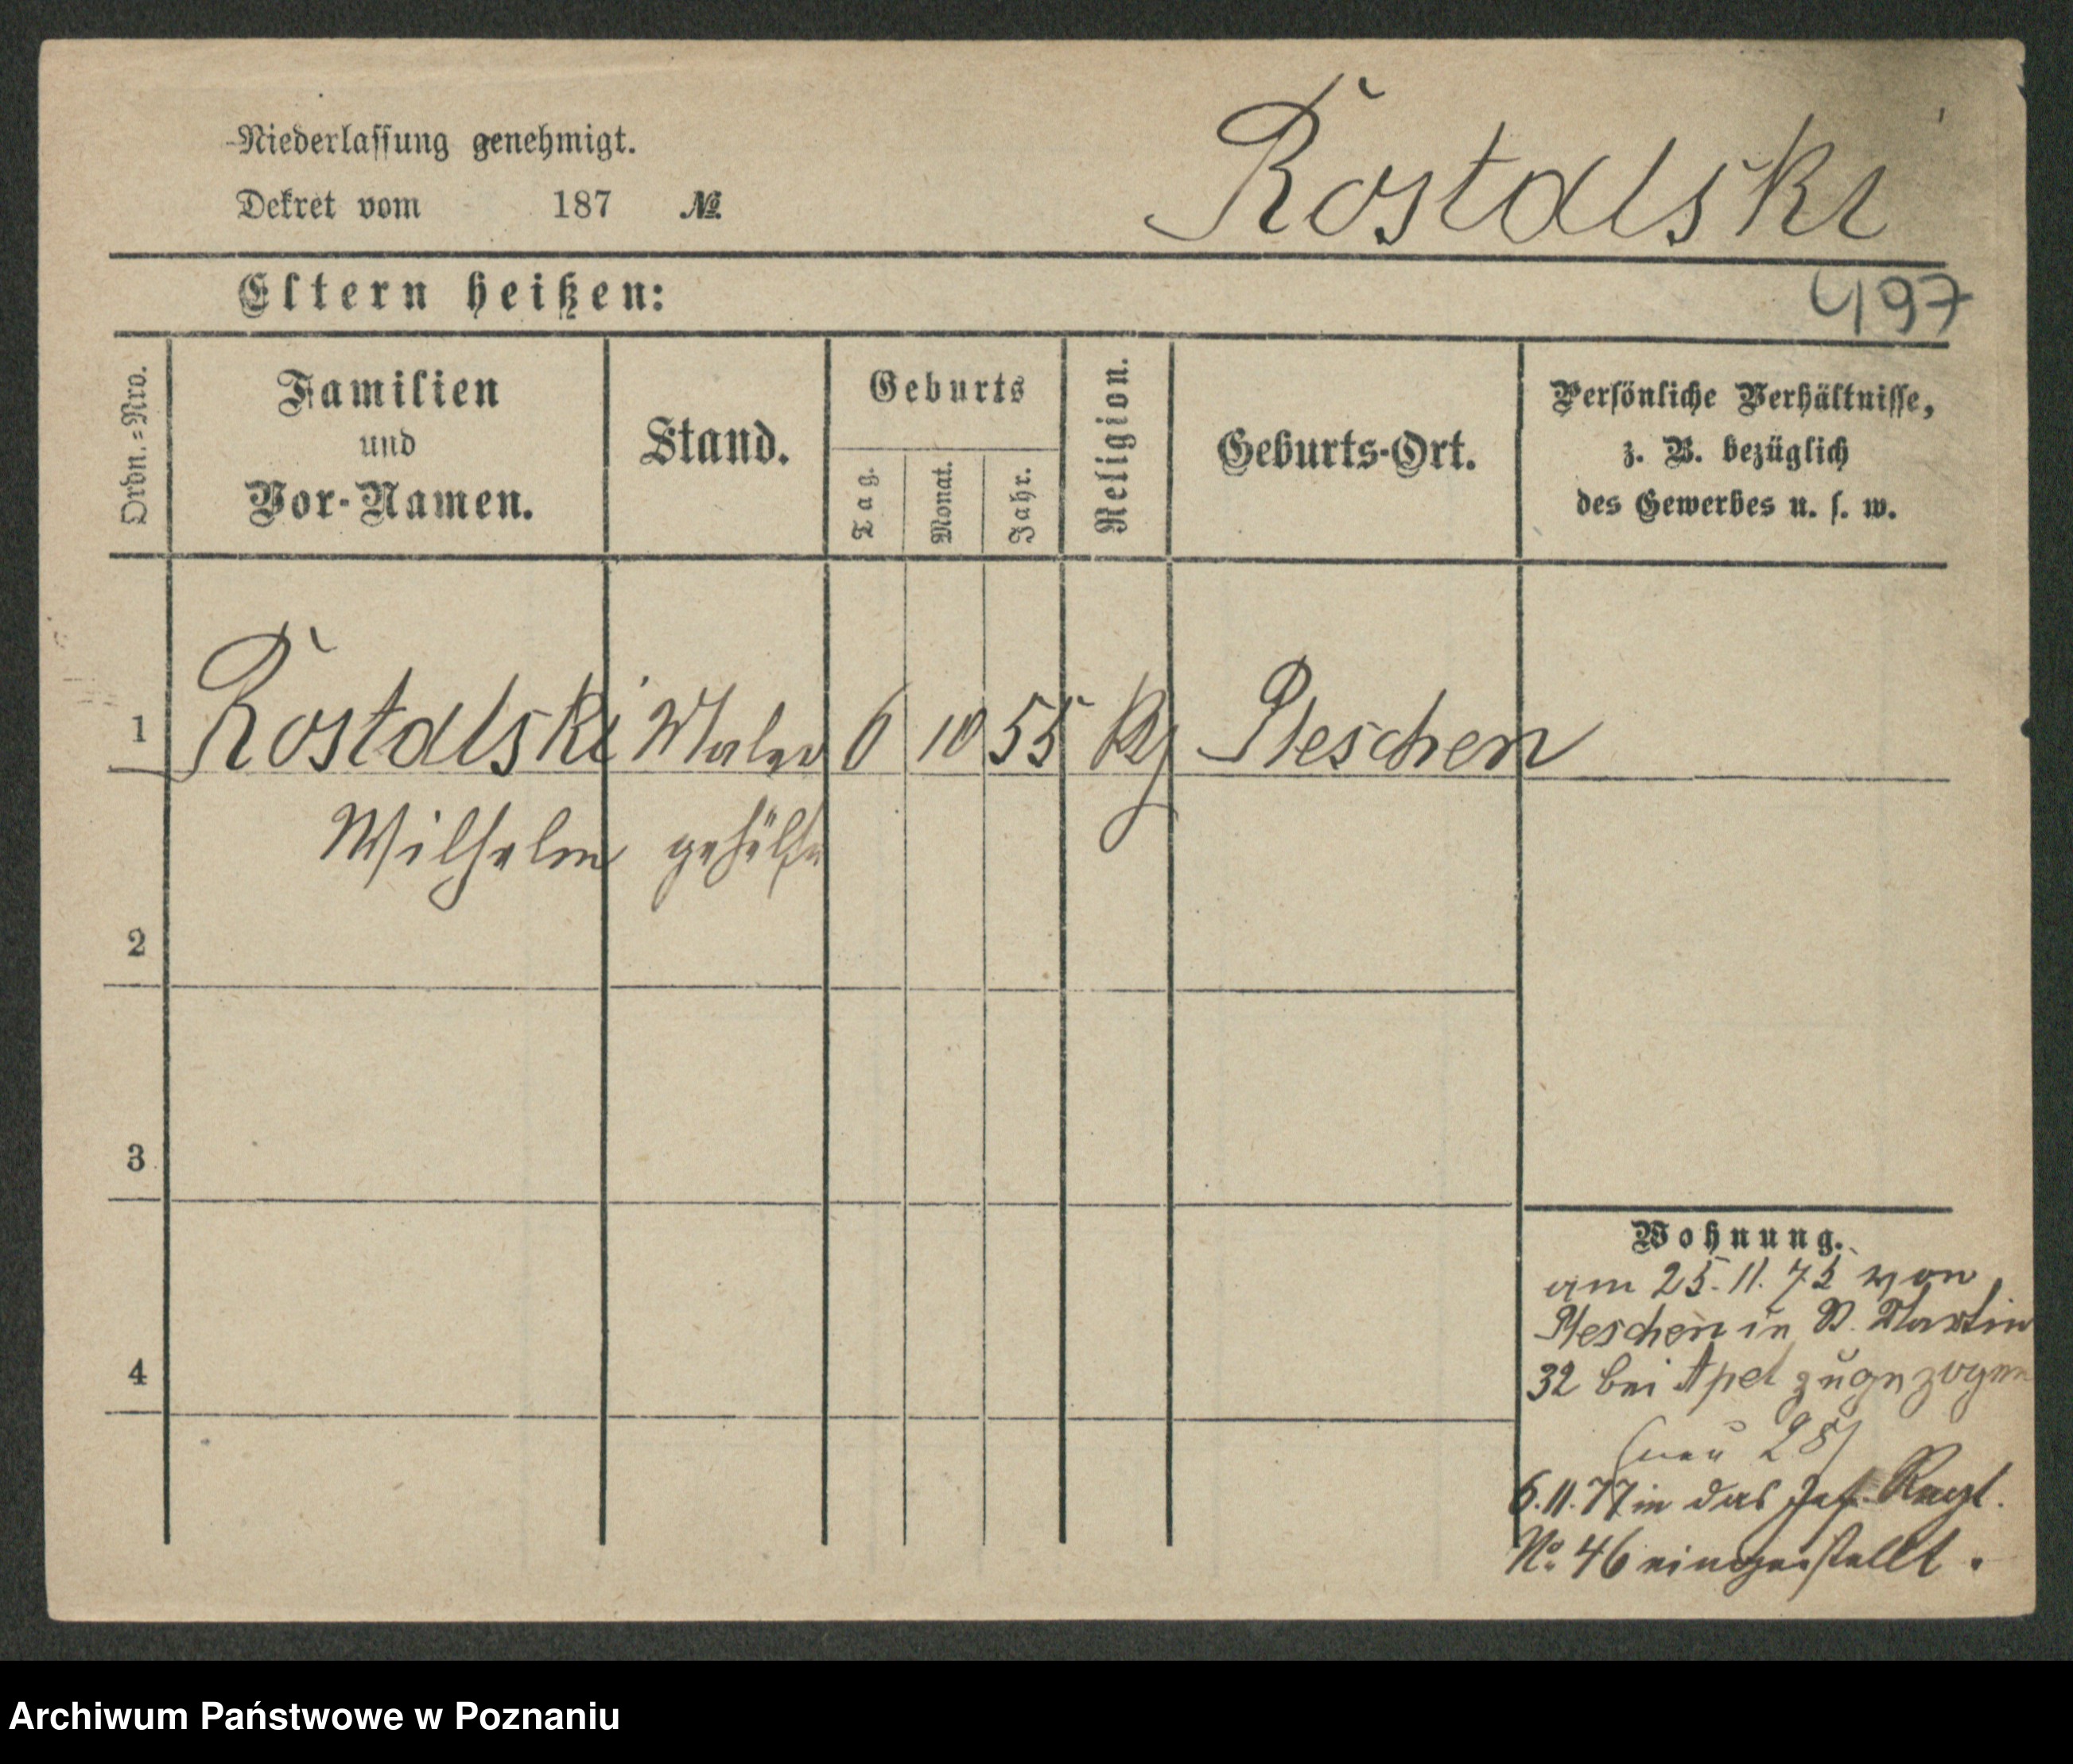 Niederlassung genehmigt.
Dekret vom 187 №
Rostalski
Eltern heißen:
497
Ordn.=Nro.
Familien
und
Vor-Namen.
Stand.
Geburts
Tag.
Monat.
Jahr.
Religion.
Geburts-Ort.
Persönliche Verhältnisse,
z. B. bezüglich
des Gewerbes u. s. w.
1 Rostalski Maler 6 10 55 Pleschen
Wilhelm gehülfe
2
3
4
Wohnung.
am 25.11.75 von
Pleschen in St. Martin
32 bei Apel zugezogen
(neu 28)
6.11.77 in das Inf. Regt.
No. 46 eingestellt.
Archiwum Państwowe w Poznaniu